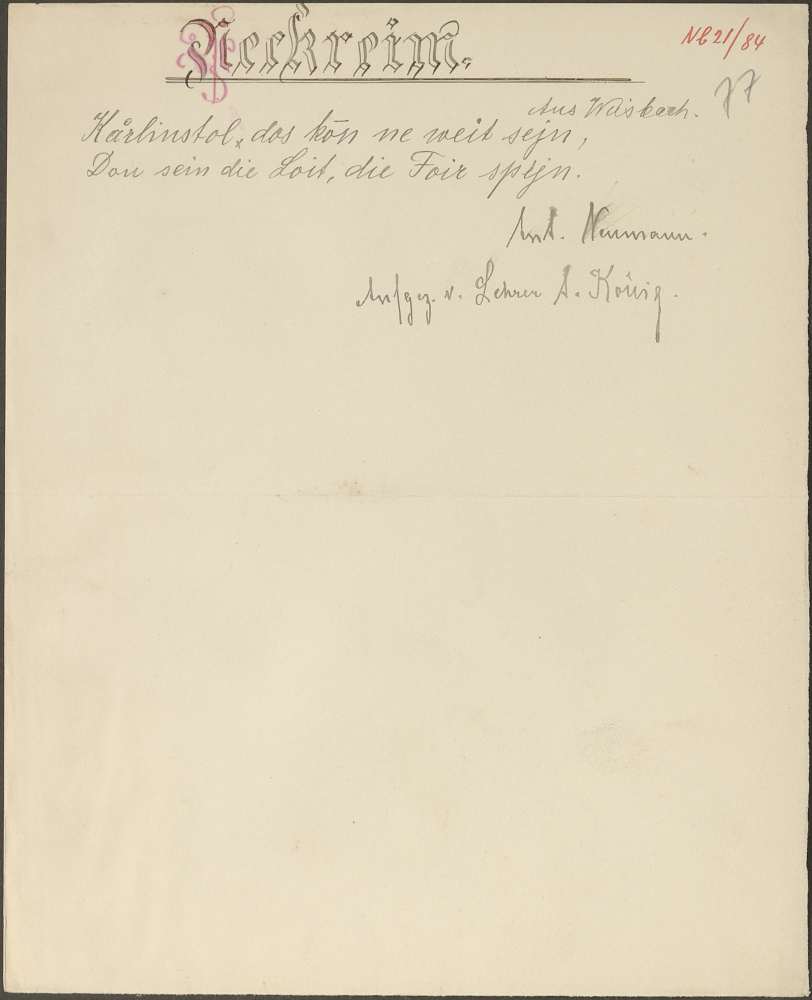 Neckreim.
NB 21/84
77
Aus Waisbach.
Kårlinstol, dos kōn ne weit sejn,
Dou sein die Loit, die Foir spejn.
Ant. Neumann.
Aufgez. v. Lehrer A. König.